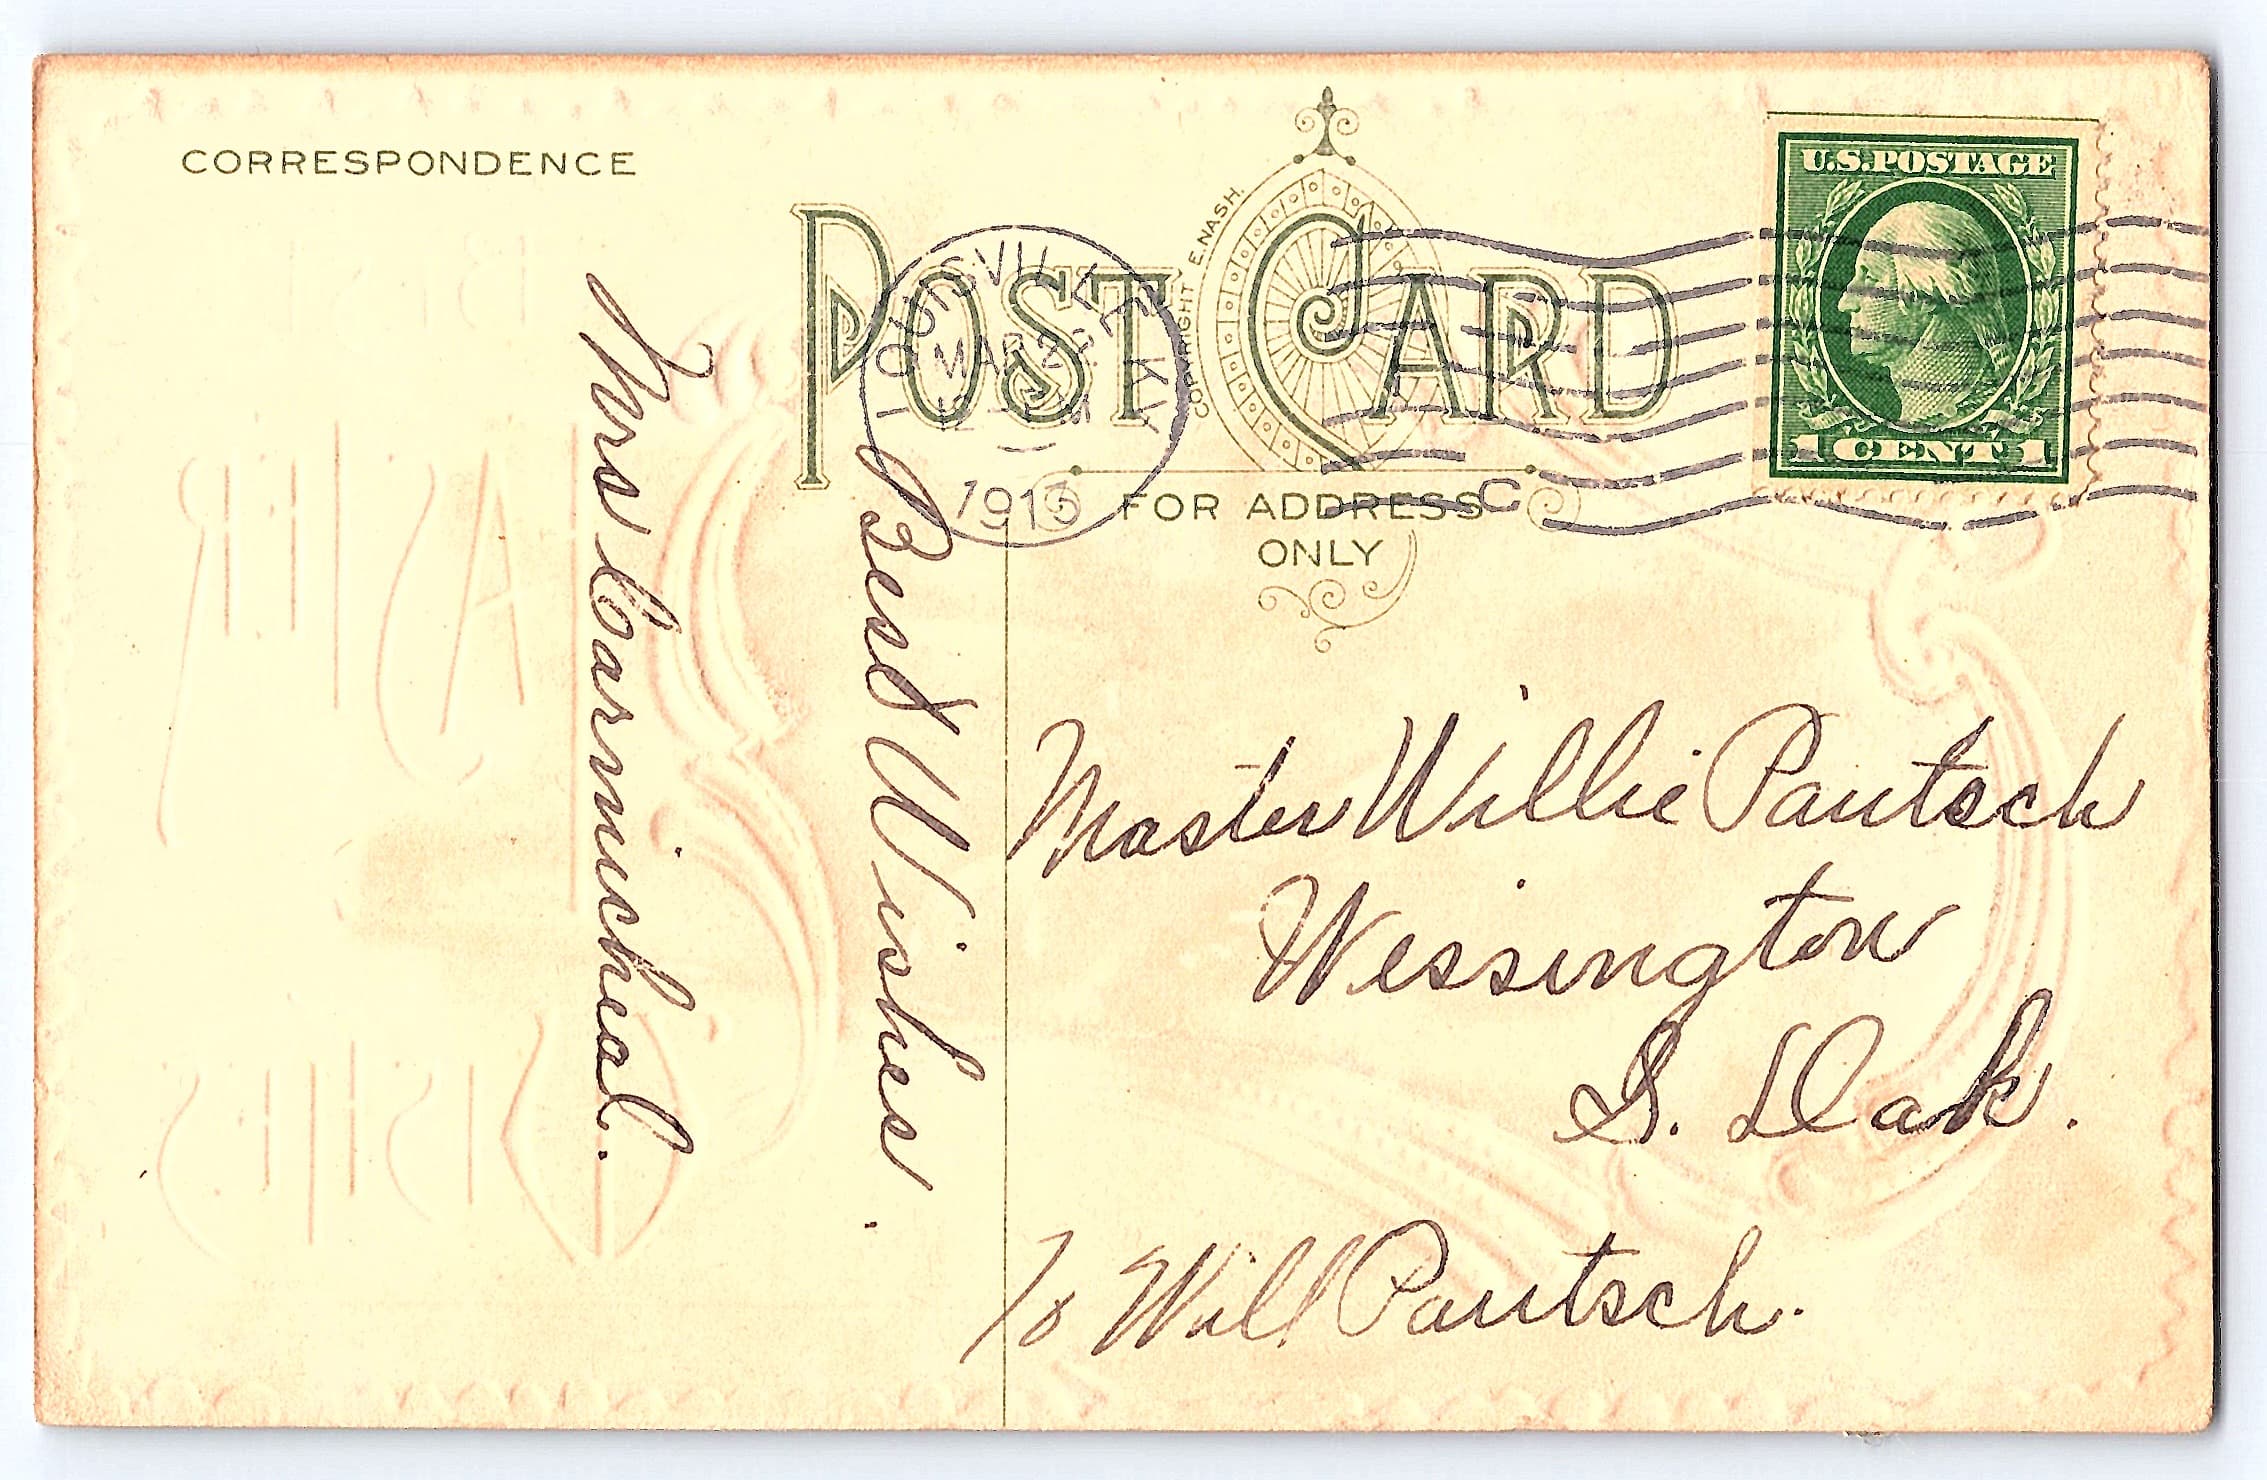 CORRESPONDENCE
POST CARD
COPYRIGHT E. NASH.
FOR ADDRESS
ONLY
U.S. POSTAGE
1 CENT 1
LOUISVILLE KY
MAR 22
1913
C
Best Wishes.
Mrs Carmicheal.
Master Willie Pautsch
Wessington
S. Dak.
To Will Pautsch.